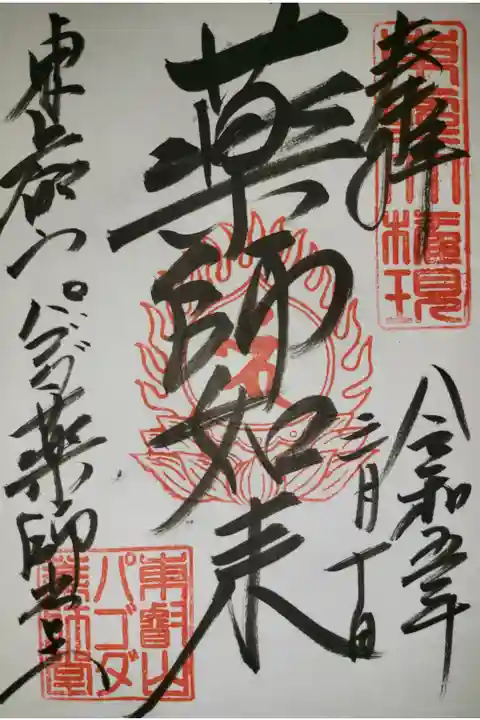 奉拝
東照大権現
令和五年
二月十日
薬師如来
東叡山パゴダ薬師堂
東叡山
パゴダ
薬師堂